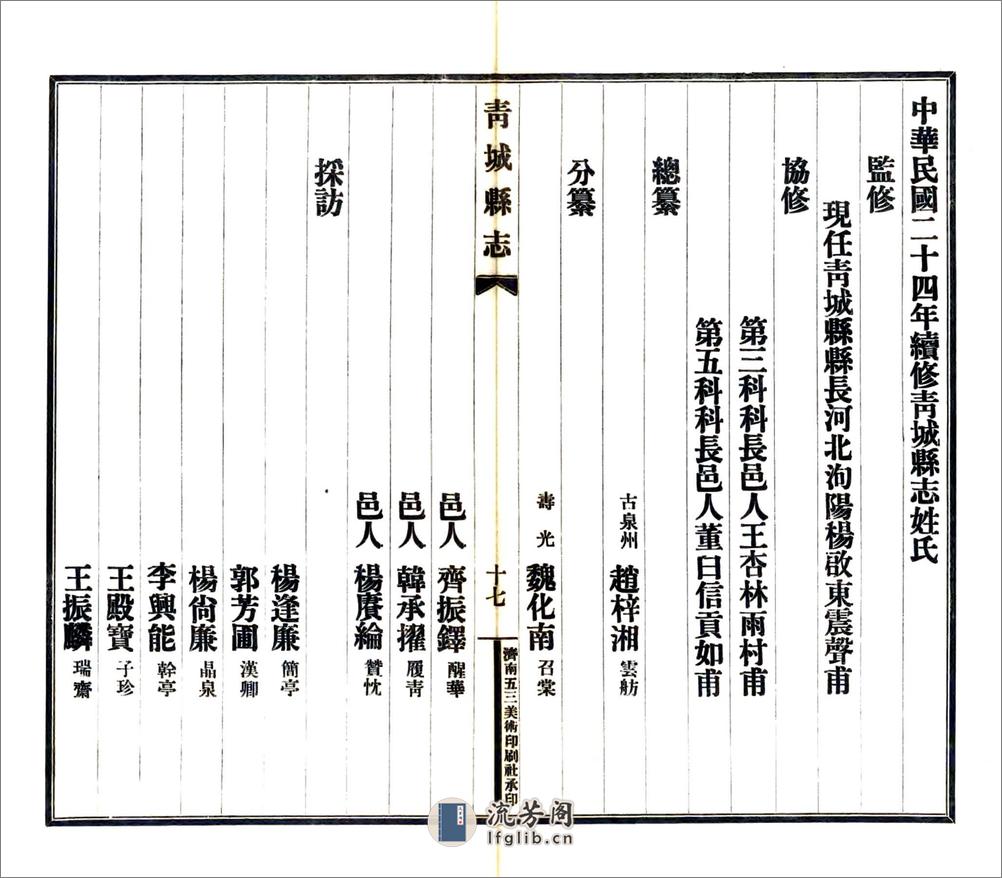 中華民國二十四年續修靑城縣志姓氏
監修
現任靑城縣縣長河北洵陽楊啟東震聲甫
協修
第三科科長邑人王杏林雨村甫
第五科科長邑人董曰信貢如甫
總纂
古泉州 趙梓湘 雲舫
分纂
壽光 魏化南 召棠
靑城縣志
十七
濟南五三美術印刷社承印
邑人 齊振鐸 醒華
邑人 韓承擢 履靑
邑人 楊賡綸 贊忱
採訪
楊逢廉 簡亭
郭芳圃 漢卿
楊尙廉 晶泉
李興能 幹亭
王殿寶 子珍
王振麟 瑞齋
流芳阁
lfglib.cn